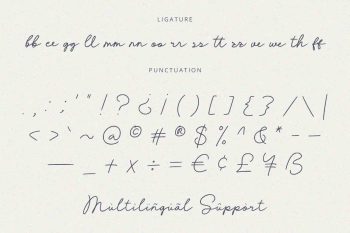 LIGATURE
bb ee gg ll mm nn oo rr ss tt zz ve we th ff
PUNCTUATION
. , : ; ' " ! ? ¿ ¡ ( ) [ ] { } / \ |
< > ` ~ @ © # ® $ % ^ & * - –
— _ + x ÷ = € ¢ £ ¥ ß
Multilingual Support